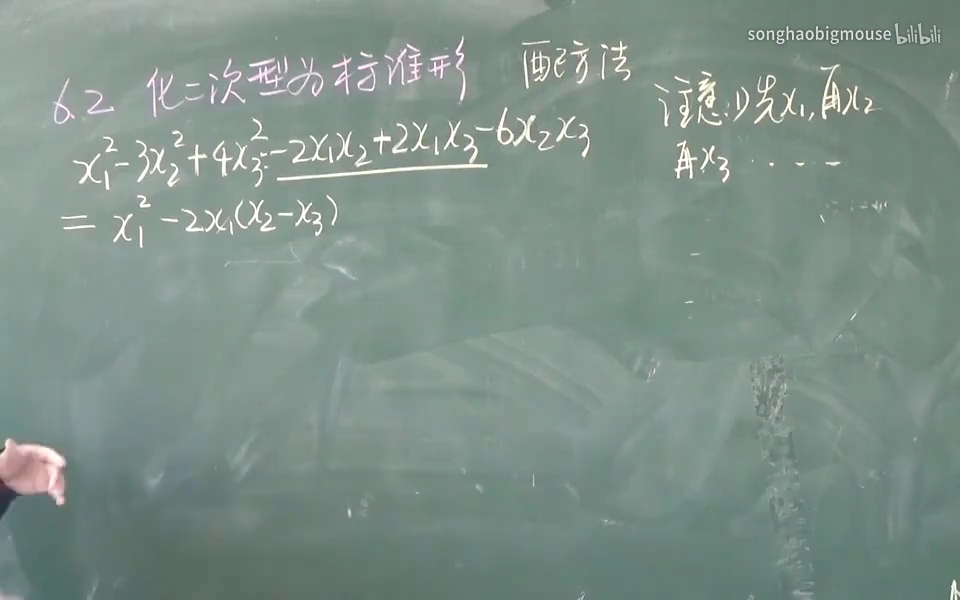 songhaobigmouse bilibili
6.2 化二次型为标准形 配方法
x₁² - 3x₂² + 4x₃² - 2x₁x₂ + 2x₁x₃ - 6x₂x₃
= x₁² - 2x₁(x₂ - x₃)
注意:1)先x₁,再x₂
再x₃ ····